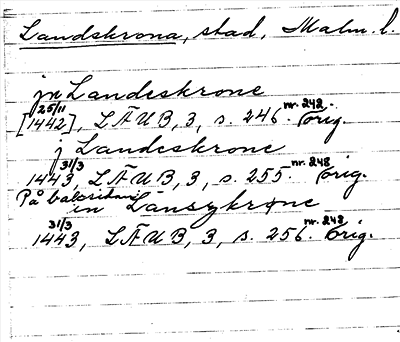 Landskrona, stad, Malm. l.
jn Landeskrone
[25/11 1442], LÄUB, 3, s. 246. nr. 242. orig.
j Landeskrone
31/3 1443, LÄUB, 3, s. 255. nr. 248. orig.
På baksidan
in Lansykrone
31/3 1443, LÄUB, 3, s. 256. nr. 248. orig.